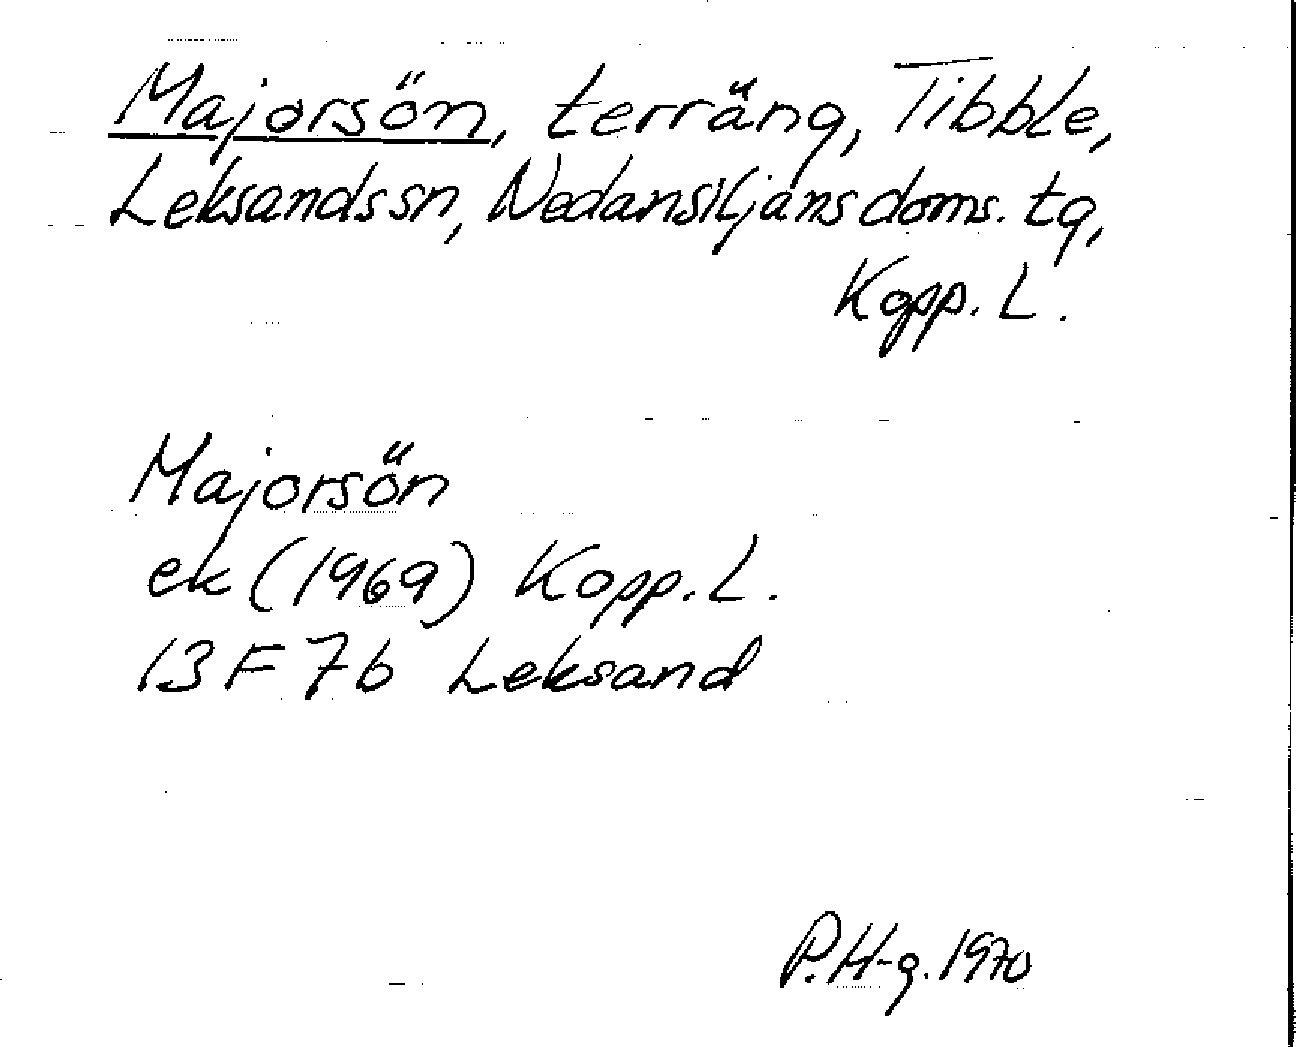 Majorsön, terräng, Tibble,
Leksands sn, Nedansiljans doms. tg,
Kopp. L.
Majorsön
ek (1969) Kopp. L.
13 F 7b Leksand
P. H-g. 1970